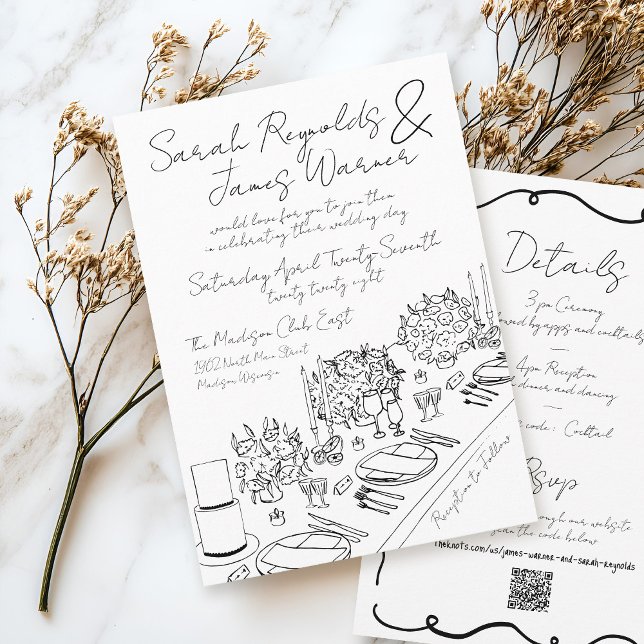 Sarah Reynolds &
James Warner
would love for you to join them
in celebrating their wedding day
Saturday April Twenty-Seventh
twenty twenty eight
The Madison Club East
1902 North Main Street
Madison Wisconsin
Reception to Follow
Details
3pm Ceremony
by apps and cocktails
4pm Reception
dinner and dancing
code: Cocktail
our website
the code below
theknots.com/us/james-warner-and-sarah-reynolds